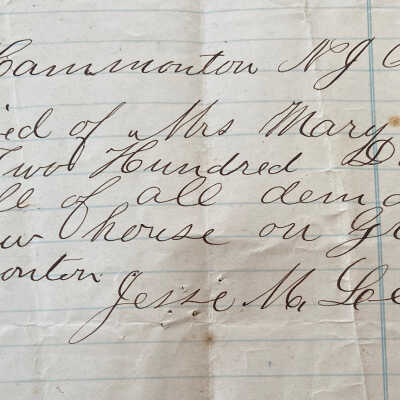 Hammonton NJ
ied of Mrs Mary
Two Hundred D
of all dem
house on G
onton
Jesse M. Lee